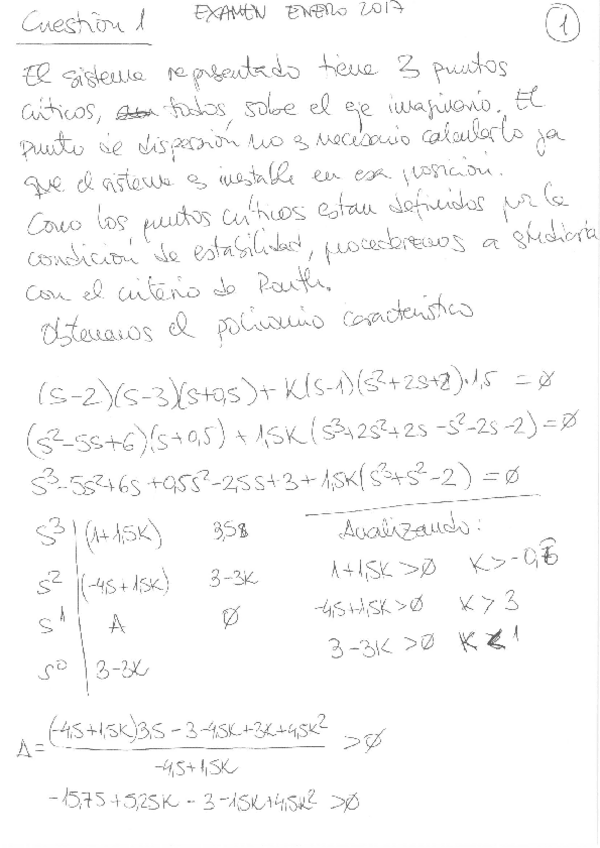 Cuestión 1 EXAMEN ENERO 2017 1
El sistema representado tiene 3 puntos
críticos, todos, sobre el eje imaginario. El
punto de dispersión no es necesario calcularlo ya
que el sistema es inestable en esa posición.
Como los puntos críticos estan definidos por la
condición de estabilidad, procederemos a studiarla
con el criterio de Routh.
Obtenemos el polinomio caracteristico
(s-2)(s-3)(s+0,5)+K(s-1)(s²+2s+2)·1,5 = ∅
(s²-5s+6)(s+0,5)+1,5K(s³+2s²+2s-s²-2s-2)=∅
s³-5s²+6s+0,5s²-2,5s+3+1,5K(s³+s²-2)=∅
s³ | (1+1,5K) 3,5 Analizando:
s² | (-4,5+1,5K) 3-3K 1+1,5K>∅ K>-0,6
s¹ | A ∅ -4,5+1,5K>∅ K>3
s⁰ | 3-3K 3-3K>∅ K<1
A = (-4,5+1,5K)3,5-3-4,5K+3K+4,5K² >∅
-4,5+1,5K
-15,75+5,25K-3-1,5K+4,5K²>∅